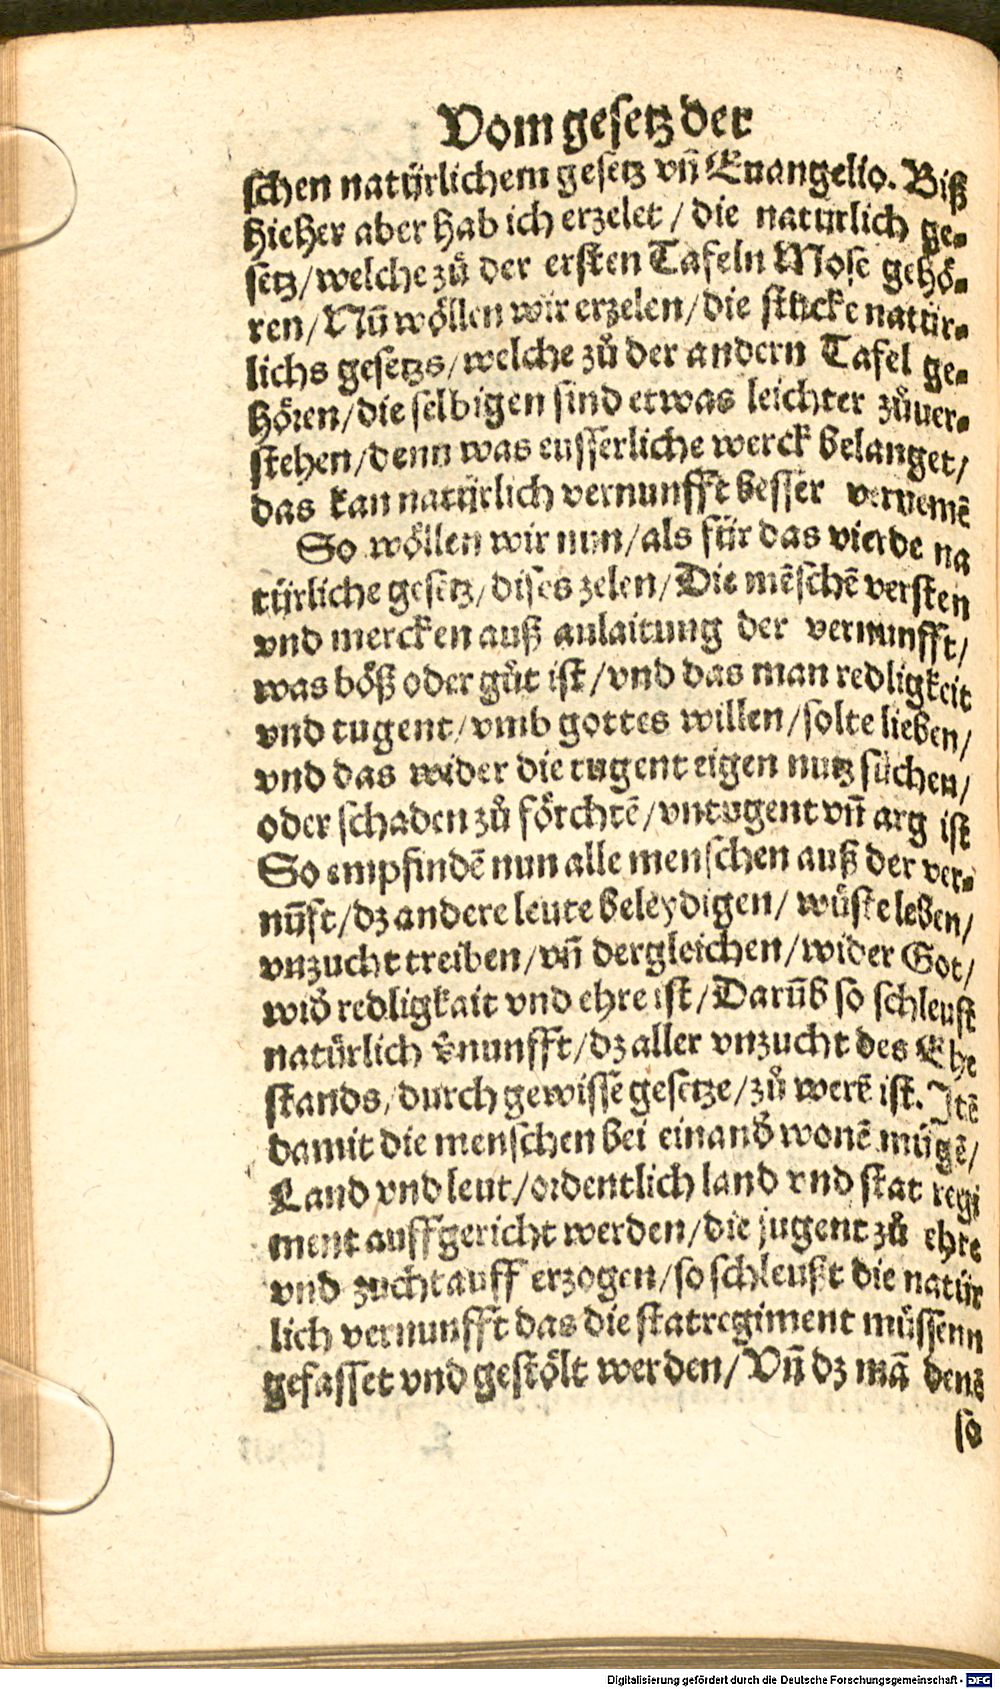 Vom gesetz der
schen natürlichem gesetz vñ Euangelio. Biß
hieher aber hab ich erzelet / die natürlich ge-
setz/welche zů der ersten Tafeln Mose gehö-
ren/Nũ wöllen wir erzelen/die stücke natür-
lichs gesetzs/welche zů der andern Tafel ge-
hören/die selbigen sind etwas leichter zůuer-
stehen/denn was eusserliche werck belanget/
das kan natürlich vernunfft besser vernemẽ
So wöllen wir nun/als für das vierde na
türliche gesetz/dises zelen/Die mẽschẽ versten
vnd mercken auß anlaitung der vernunfft/
was böß oder gůt ist/vnd das man redligkeit
vnd tugent/vmb gottes willen/solte lieben/
vnd das wider die tugent eigen nutz sůchen/
oder schaden zů förchtẽ/vntugent vñ arg ist
So empfindẽ nun alle menschen auß der ver-
nũft/dz andere leute beleydigen/ wůste leben/
vnzucht treiben/vñ dergleichen/wider Got/
wid̕ redligkait vnd ehre ist/Darũb so schleust
natürlich v̕nunfft/dz aller vnzucht des Ehe
stands/durch gewisse gesetze/zů werẽ ist. Jtẽ
damit die menschen bei einand̕ wonẽ mügẽ/
Land vnd leut/ordentlich land vnd stat regi
ment auffgericht werden/die jugent zů ehre
vnd zucht auff erzogen/so schleußt die natür
lich vernunfft das die statregiment müssenn
gefasset vnd gestölt werden/Vñ dz mã dens
so
Digitalisierung gefördert durch die Deutsche Forschungsgemeinschaft - DFG